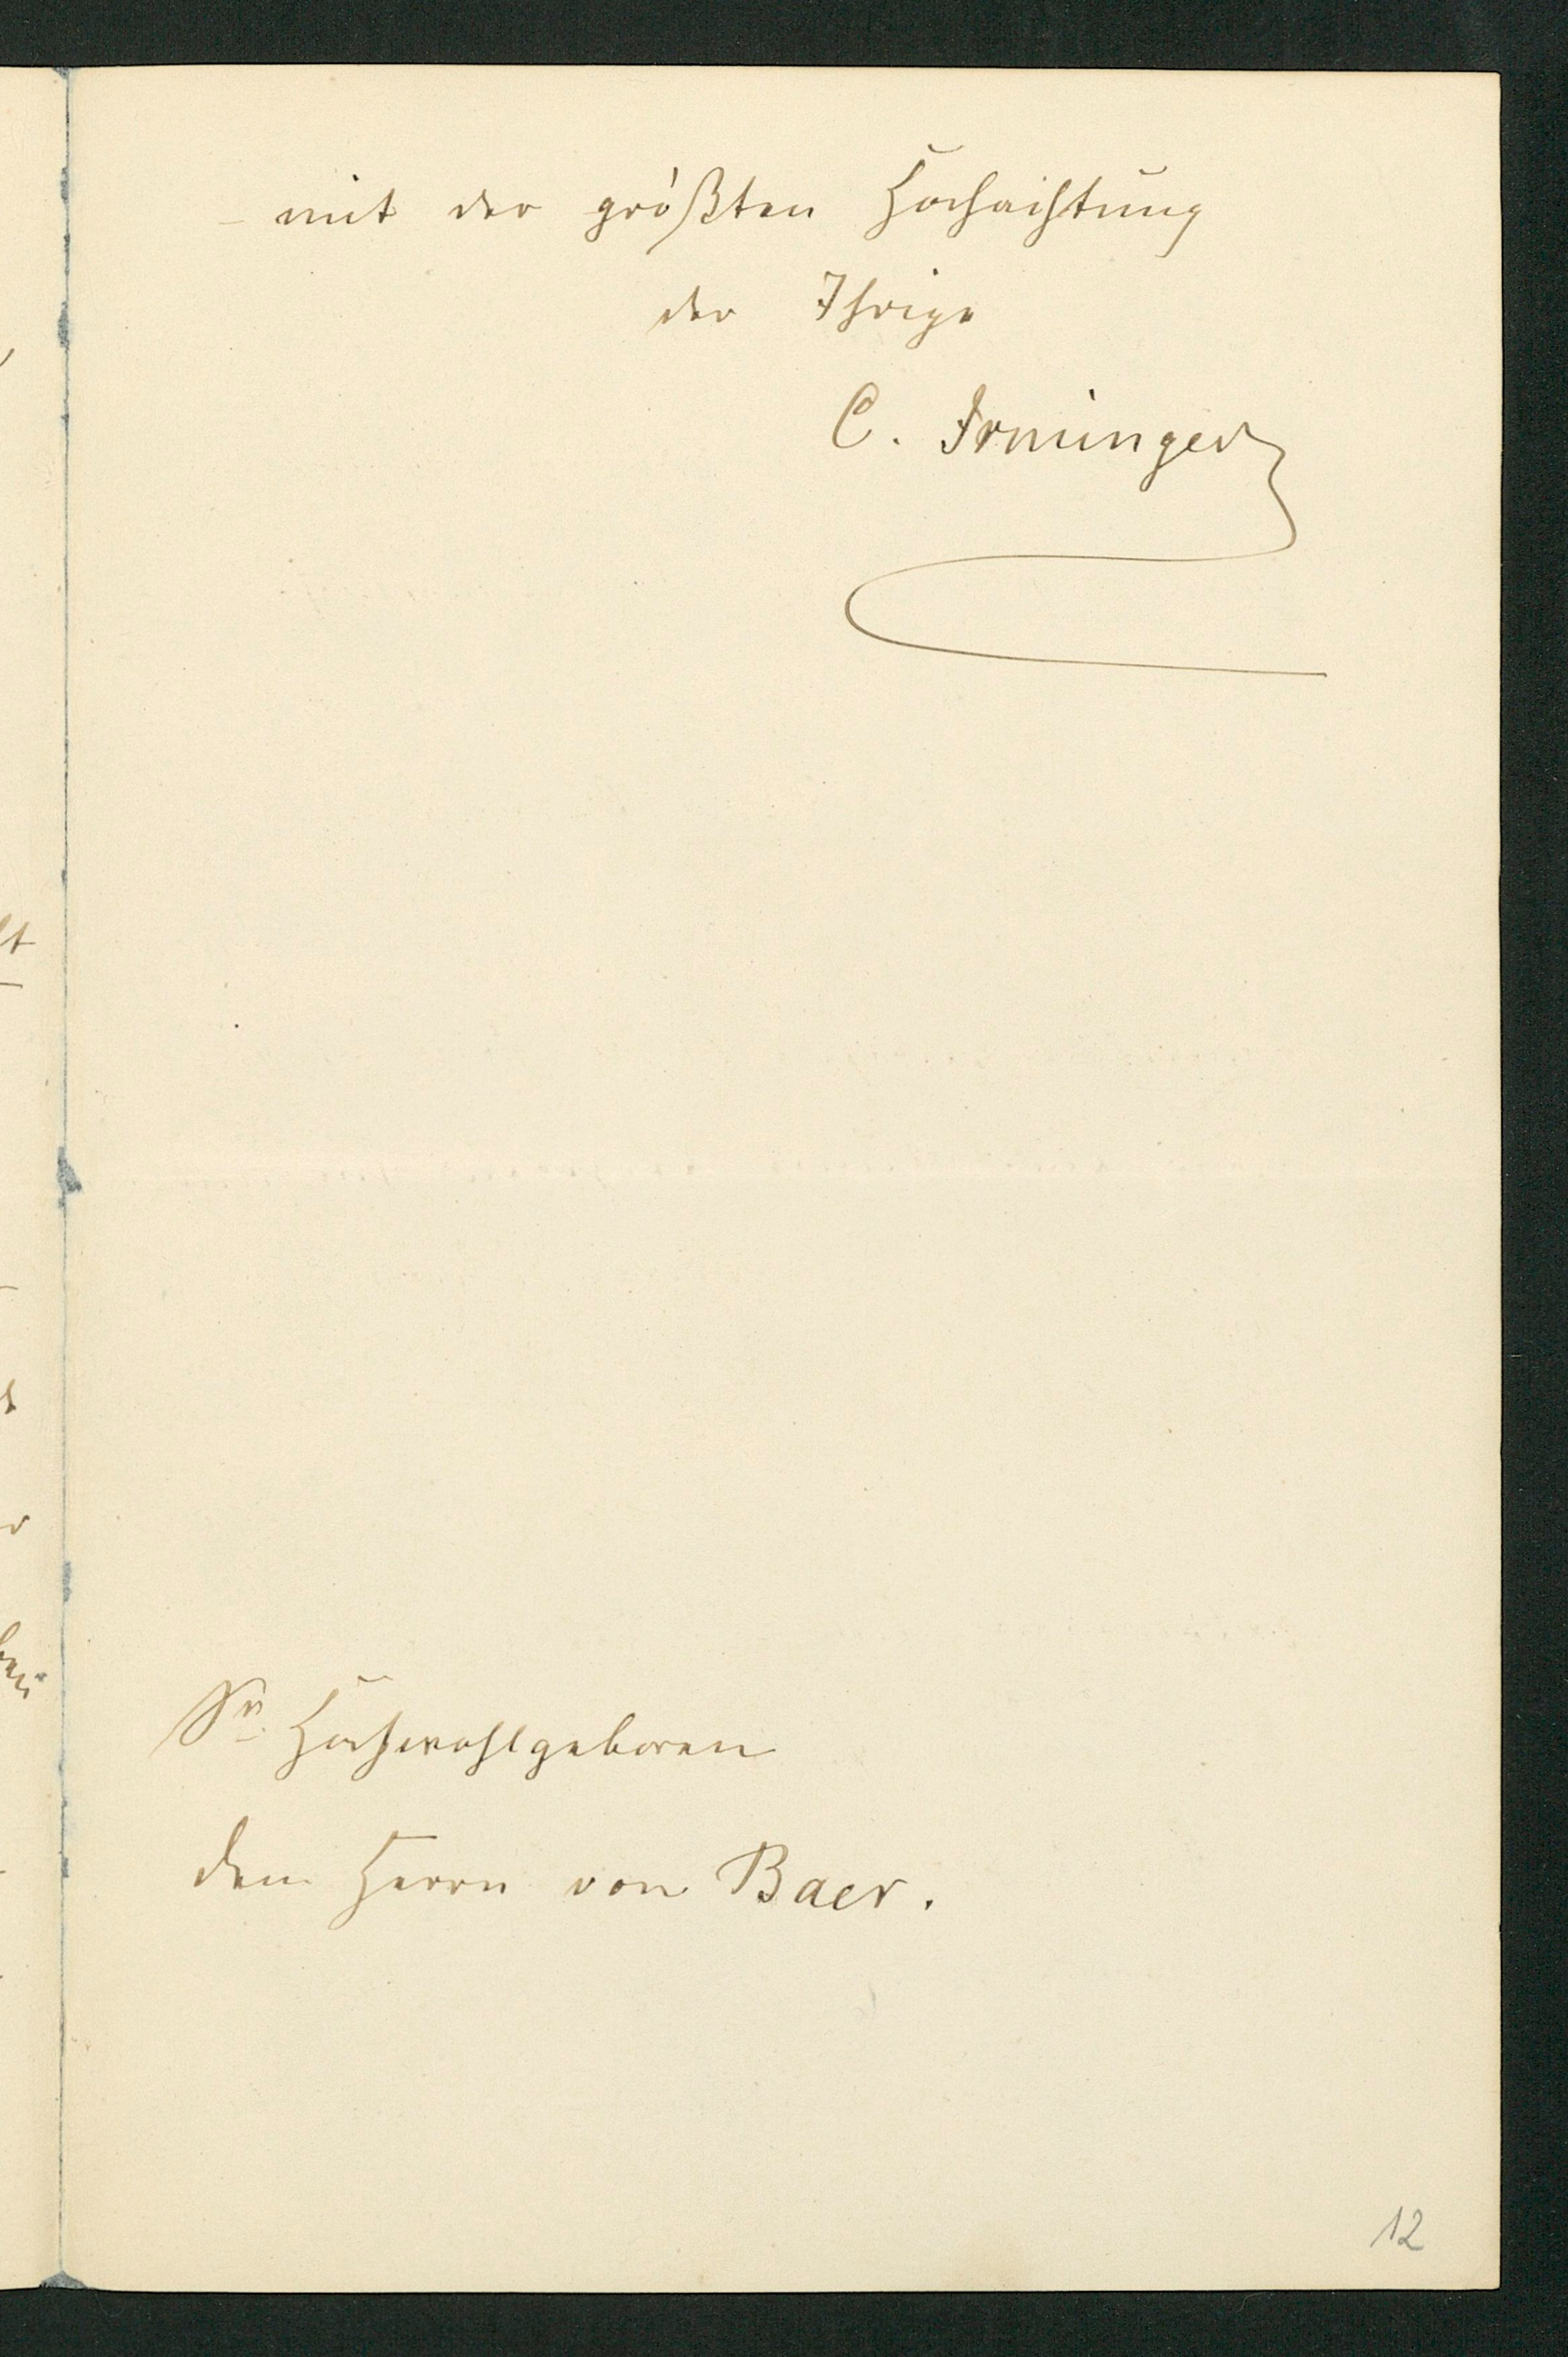 – mit der größten Hochachtung
der Ihrige
C. Irminger
Sr. Hochwohlgeboren
dem Herrn von Baer.
12